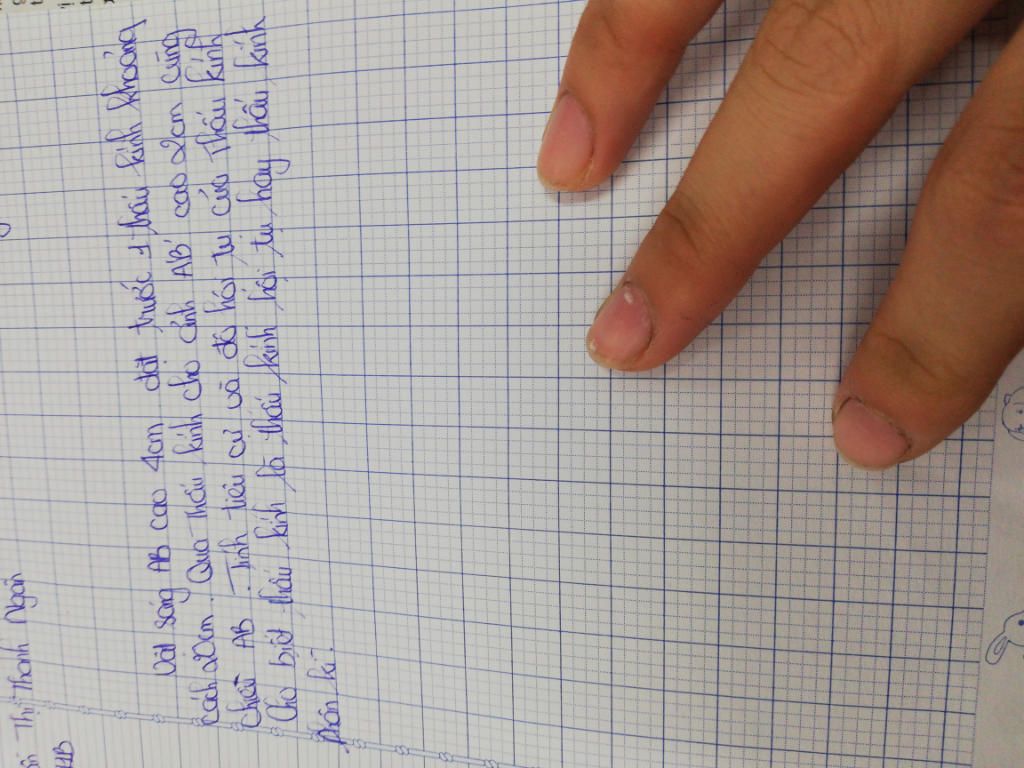 Thị Thanh Ngân
11B
Vật sáng AB cao 4cm đặt trước 1 thấu kính khoảng
cách 20cm. Qua thấu kính cho ảnh A'B' cao 2cm cùng
chiều AB. Tính tiêu cự và độ hội tụ của thấu kính
Cho biết thấu kính là thấu kính hội tụ hay thấu kính
phân kì.